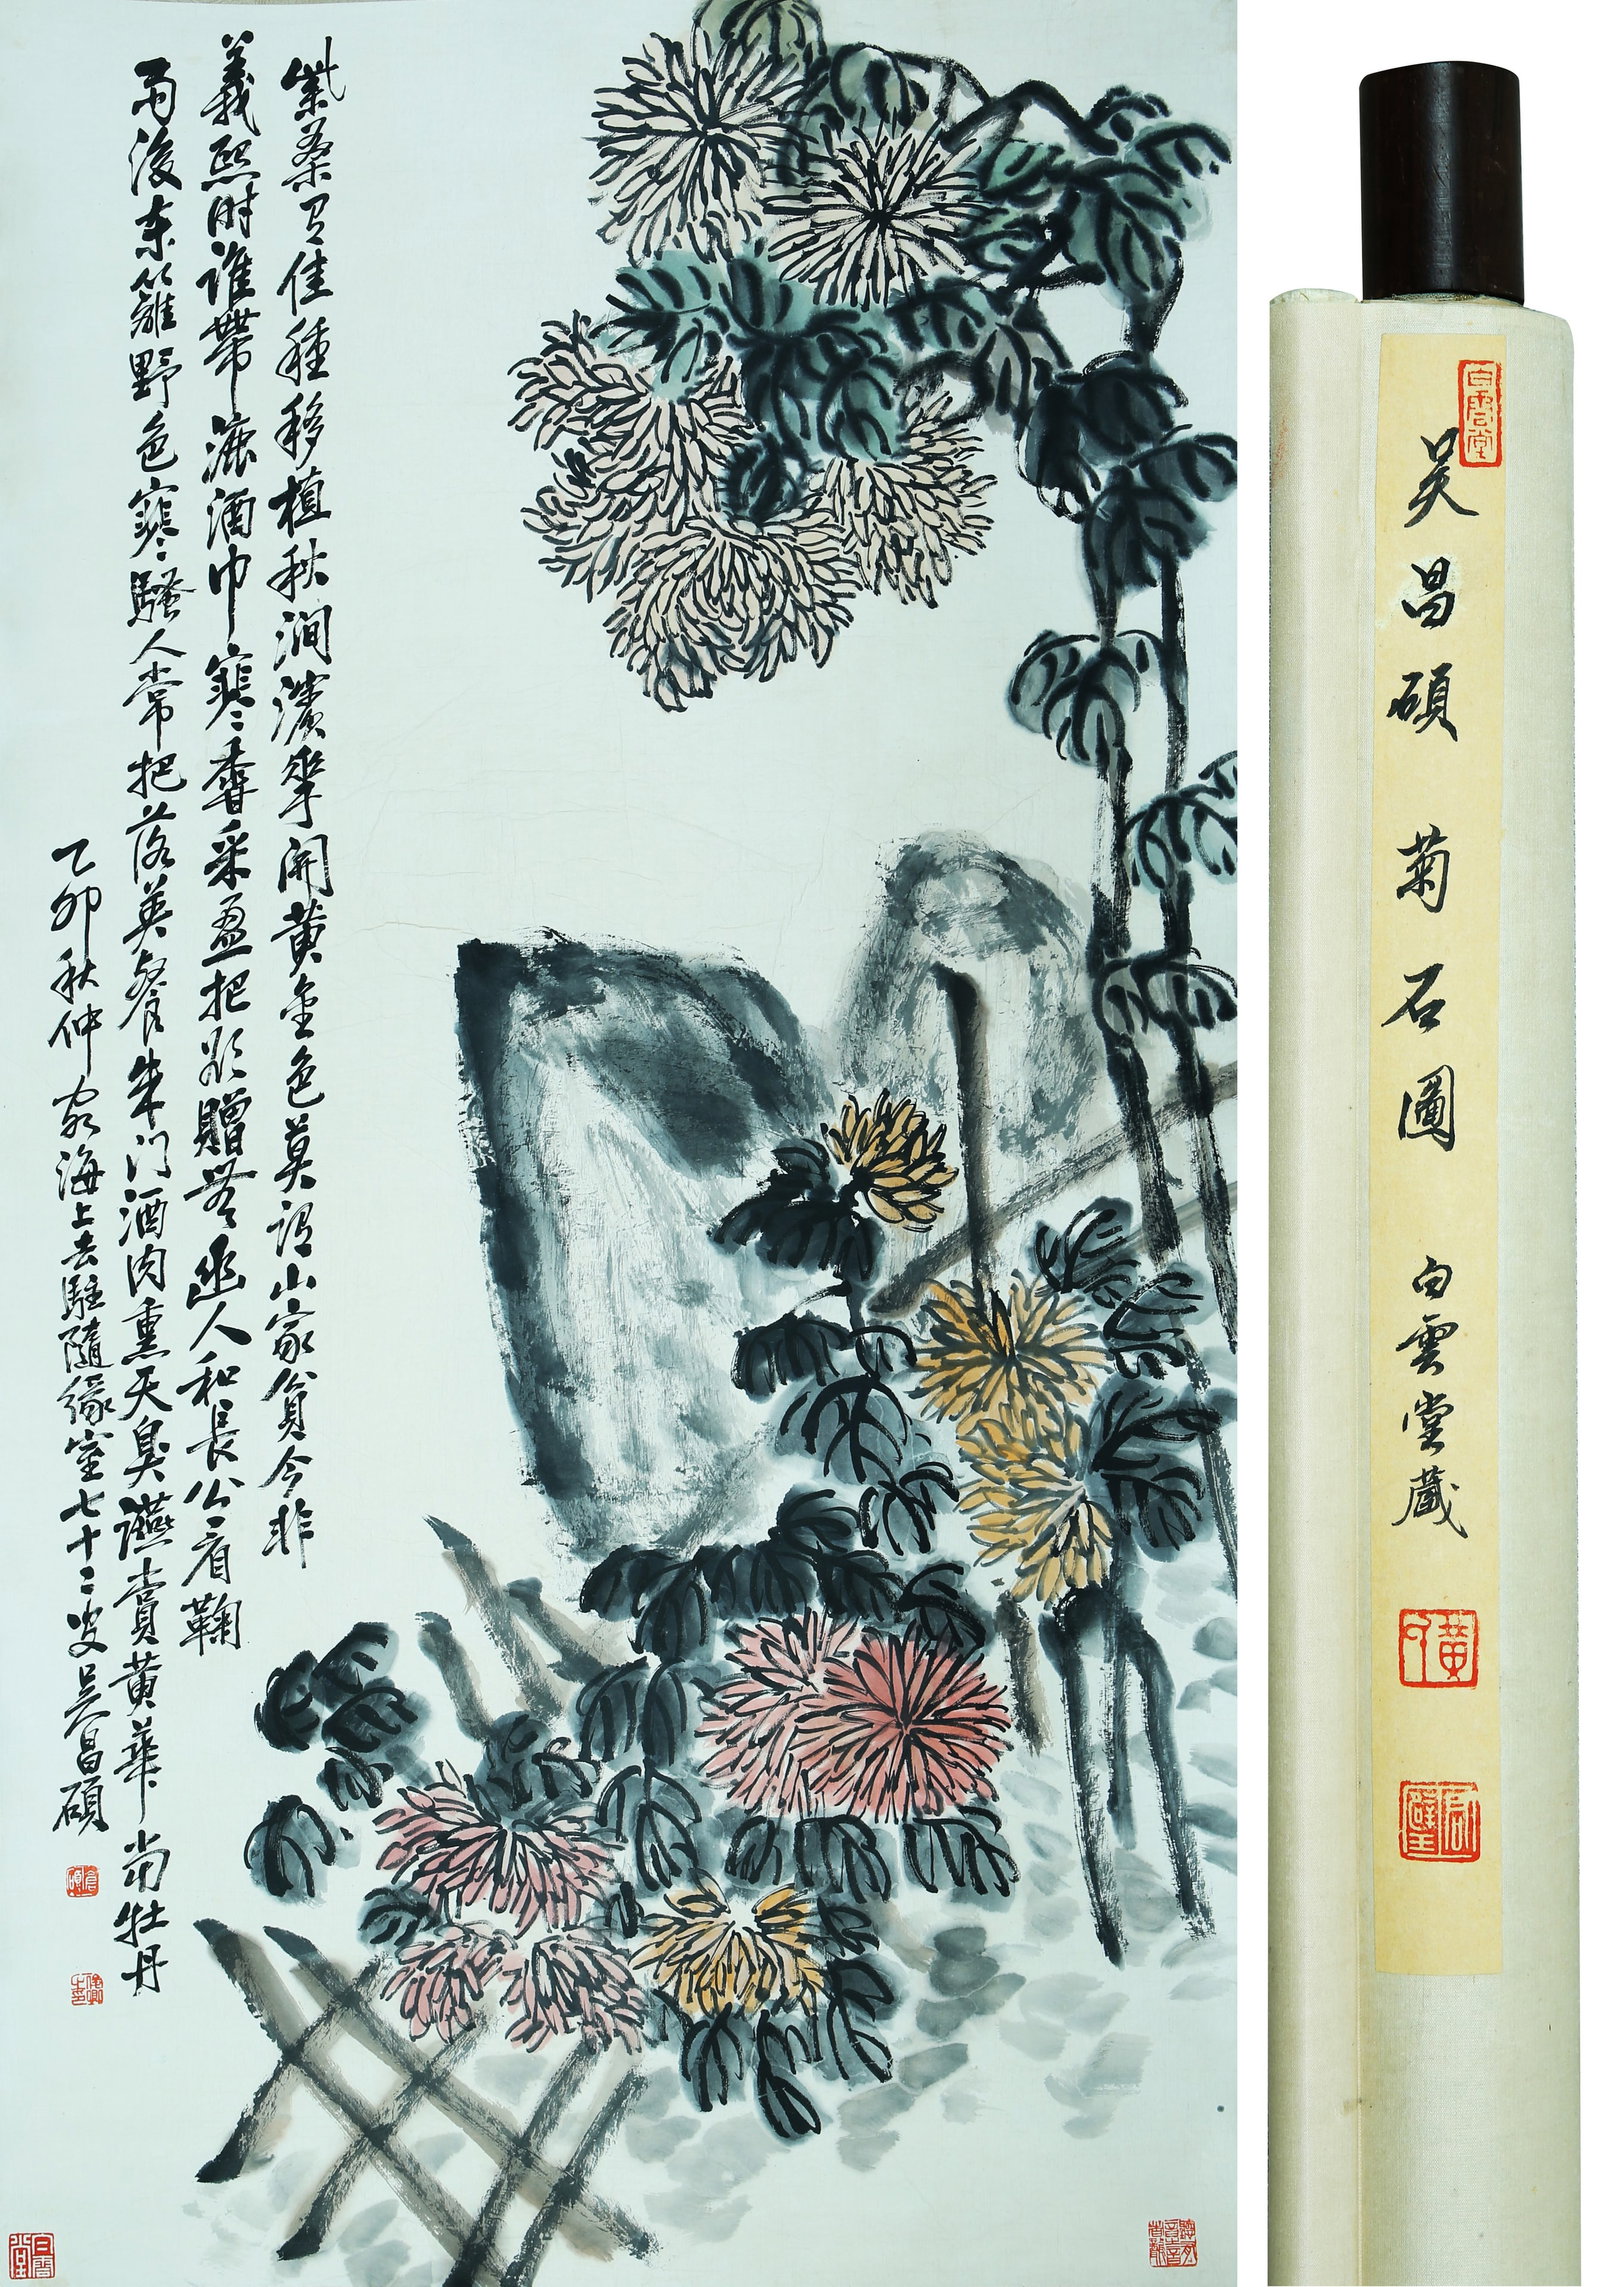 紫桑有佳種移植秋澗濱華開黄金色莫謂山家貧今非
義熙時誰帶漉酒巾寒香采盈把欲贈無幽人和長公看鞠
雨後東籬野色寒騷人常把落英餐朱門酒肉熏天臭讌賞黄華當牡丹
乙卯秋仲客海上去駐隨緣室七十二叟吳昌碩
白雲堂
吴昌碩 菊石圖 白雲堂藏